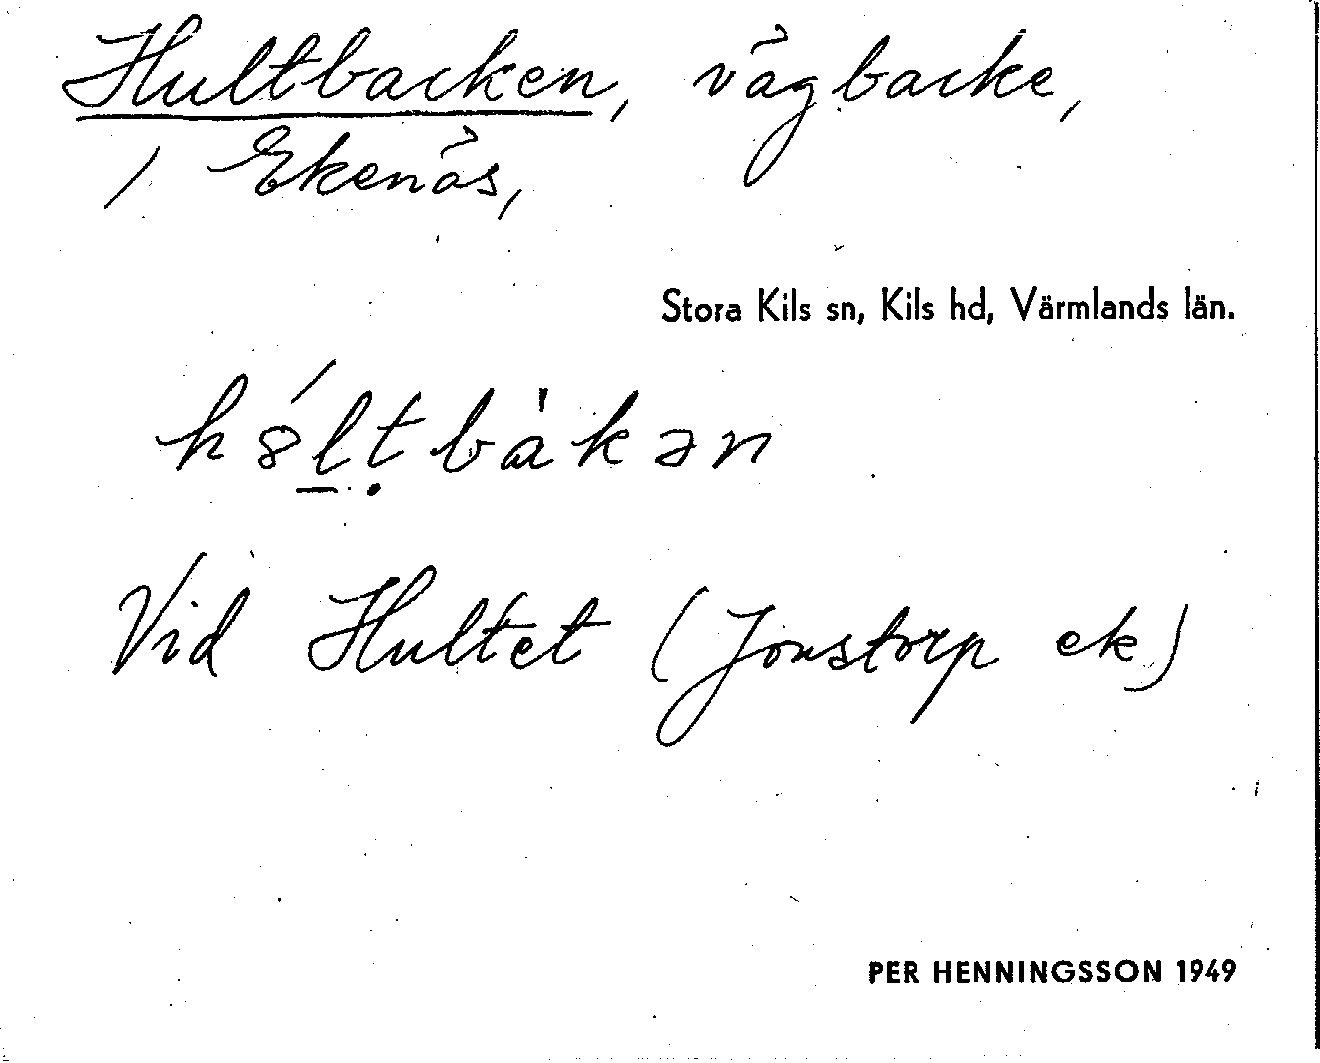 Hultbacken, vägbacke,
i Ekenäs,
Stora Kils sn, Kils hd, Värmlands län.
Vid Hultet (Jonstorp ek)
PER HENNINGSSON 1949